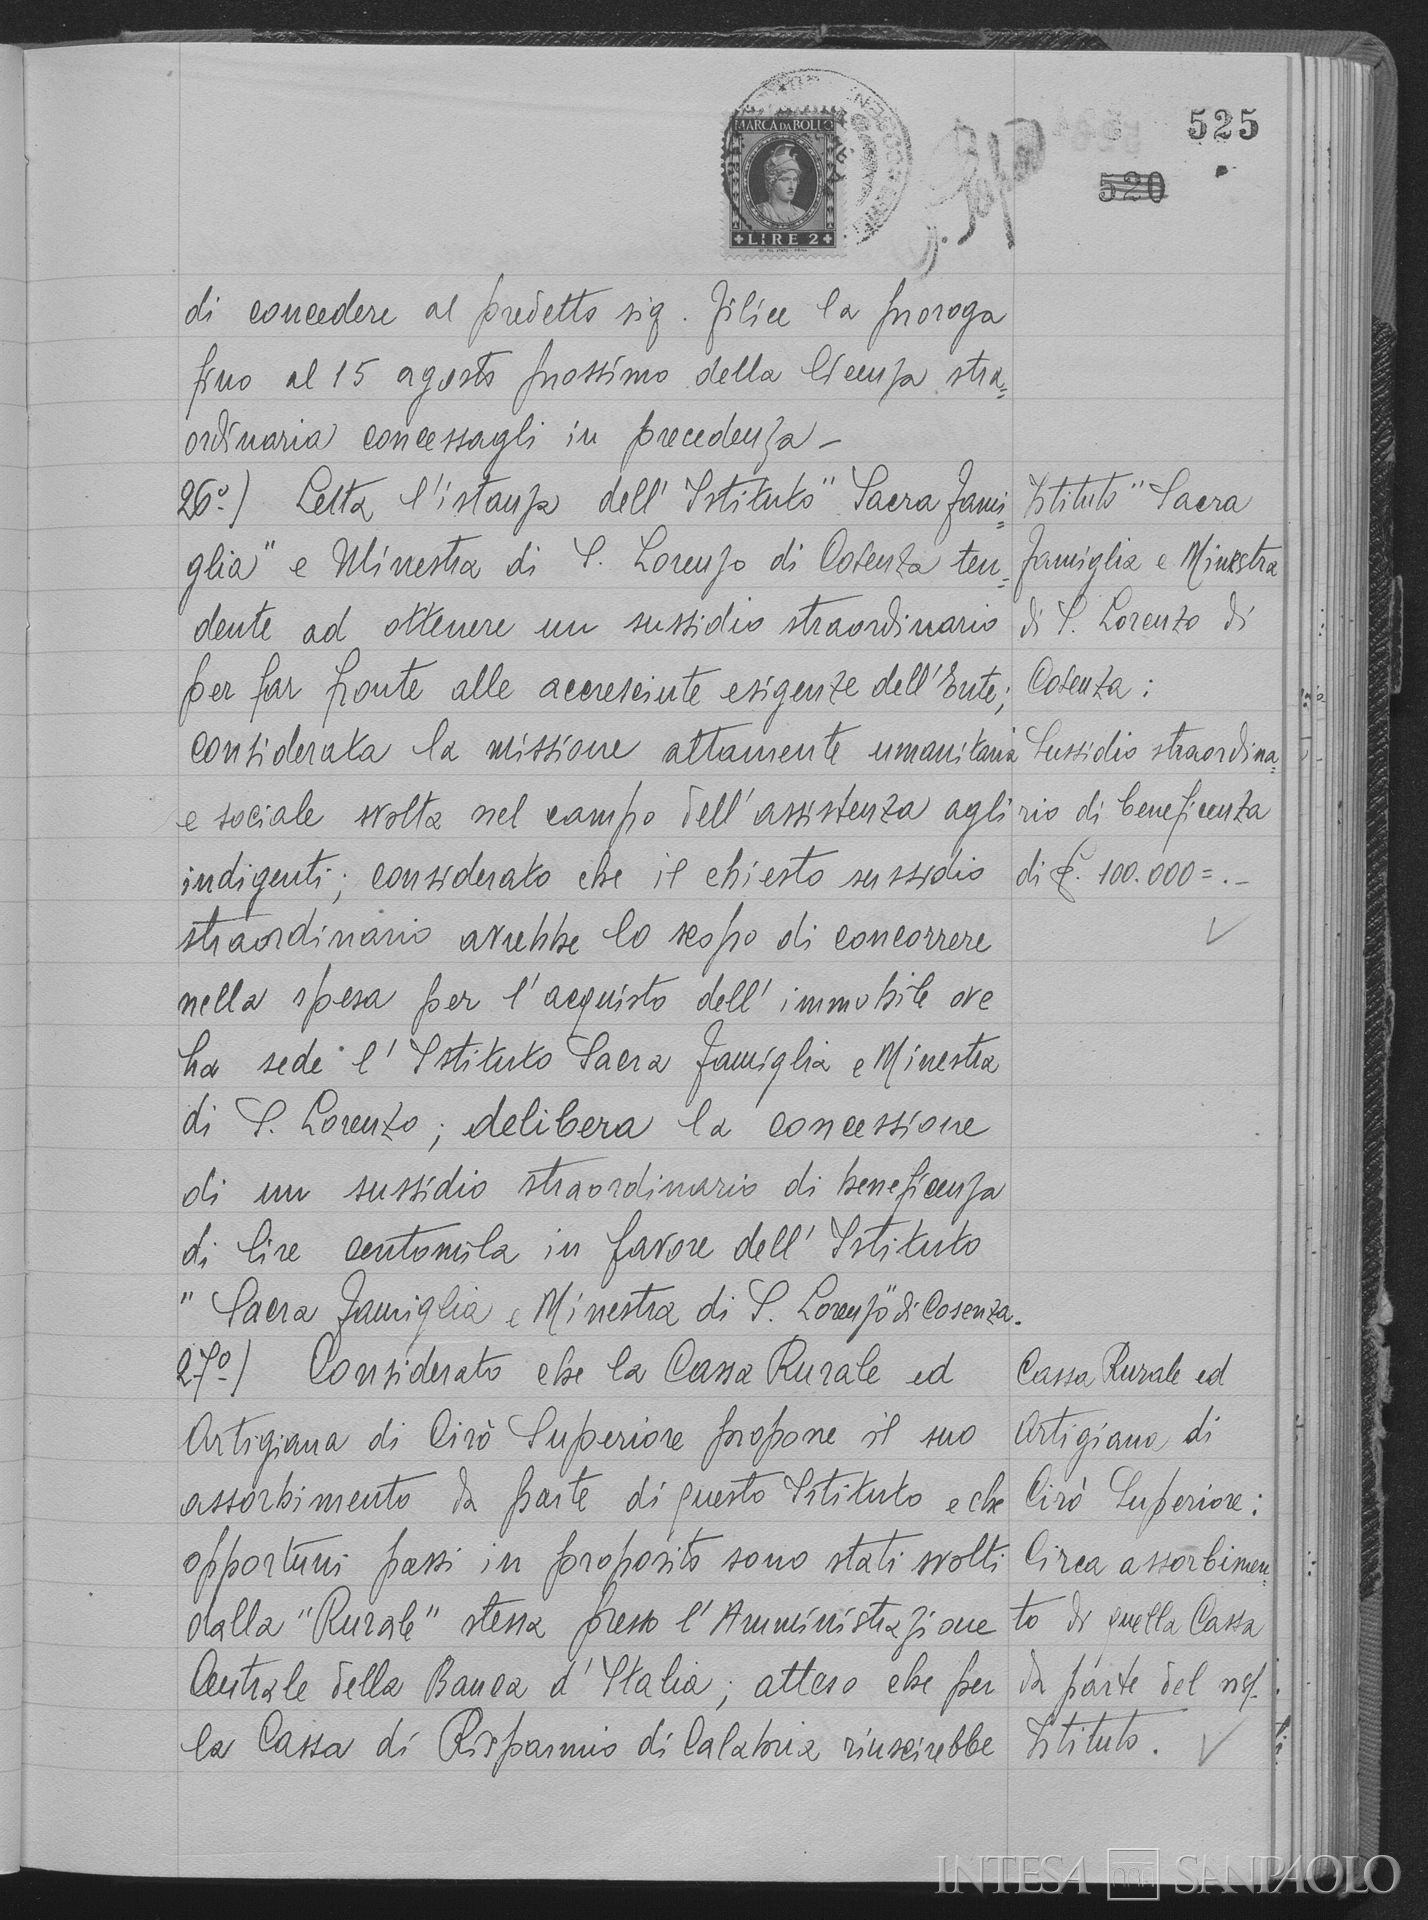 525
520
MARCA DA BOLLO
LIRE 2
di concedere al predetto sig. Filice la proroga
fino al 15 agosto prossimo della licenza stra=
ordinaria concessagli in precedenza -
26°-) Letta l'istanza dell'Istituto "Sacra Fami=
glia" e Minestra di S. Lorenzo di Cosenza ten=
dente ad ottenere un sussidio straordinario
per far fronte alle accresciute esigenze dell'Ente;
considerata la missione altamente umanitaria
e sociale svolta nel campo dell'assistenza agli
indigenti; considerato che il chiesto sussidio
straordinario avrebbe lo scopo di concorrere
nella spesa per l'acquisto dell'immobile ove
ha sede l'Istituto Sacra Famiglia e Minestra
di S. Lorenzo; delibera la concessione
di un sussidio straordinario di beneficenza
di lire centomila in favore dell'Istituto
"Sacra Famiglia e Minestra di S. Lorenzo" di Cosenza.
Istituto "Sacra
Famiglia e Minestra
di S. Lorenzo di
Cosenza:
Sussidio straordina=
rio di beneficenza
di £. 100.000=.-
27°-) Considerato che la Cassa Rurale ed
Artigiana di Cirò Superiore propone il suo
assorbimento da parte di questo Istituto e che
opportuni passi in proposito sono stati svolti
dalla "Rurale" stessa presso l'Amministrazione
Centrale della Banca d'Italia; atteso che per
la Cassa di Risparmio di Calabria riuscirebbe
Cassa Rurale ed
Artigiana di
Cirò Superiore:
Circa assorbimen=
to di quella Cassa
da parte del ns/.
Istituto.
INTESA SANPAOLO